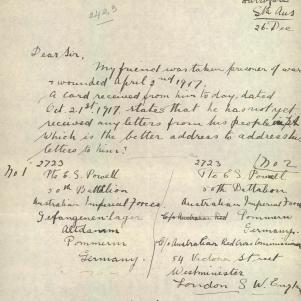 Sth Aus
26 Dec
Dear Sir,
My friend was taken prisoner of war
& wounded April 2nd 1917.
A card received from him to day, dated
Oct. 21st 1917. states that he has not yet
received my letters from his people
Which is the better address to address his
letters to him?
No 1 2723
Pte E. S. Powell
50th Battalion
Australian Imperial Forces
Gefangenenlager
Altdamm
Pommern
Germany.
2723 No 2
Pte E. S. Powell
50th Battalion
Australian Imperial Forces
Pommern
Germany.
c/o Australian Red Cross Commission
54 Victoria Street
Westminister
London S W. Engl